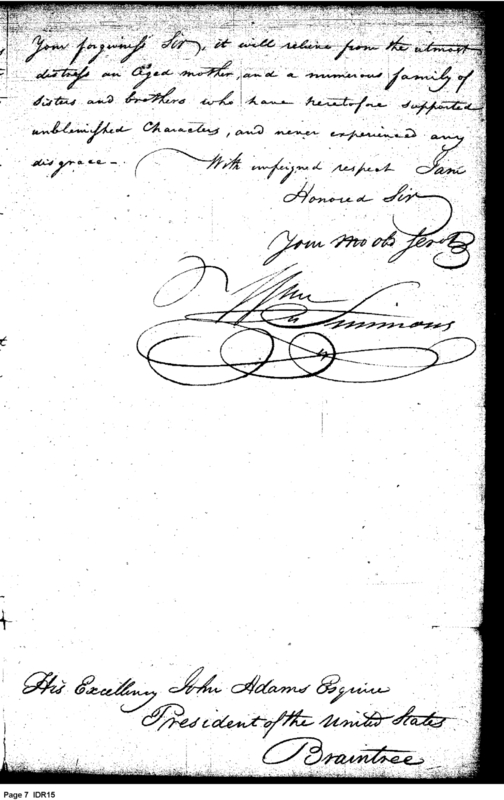 Your forgiveness Sir, it will relieve from the utmost
distress an Aged mother, and a numerous family of
sisters and brothers who have heretofore supported
unblemished Characters, and never experienced any
disgrace—
With unfeigned respect I am
Honored Sir
Your Mo Ob Servt
Wm Simmons
His Excellency John Adams Esquire
President of the United States
Braintree
Page 7 IDR15